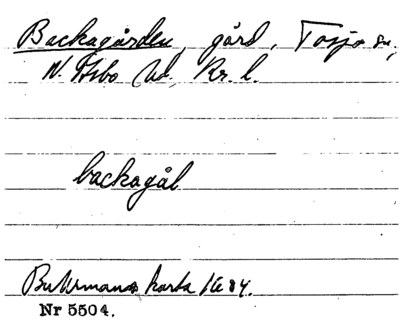 Backagården, gård, Tosjö sn,
N. Åsbo hd, Kr. l.
backagål
Buhrmans karta 1684.
Nr 5504.